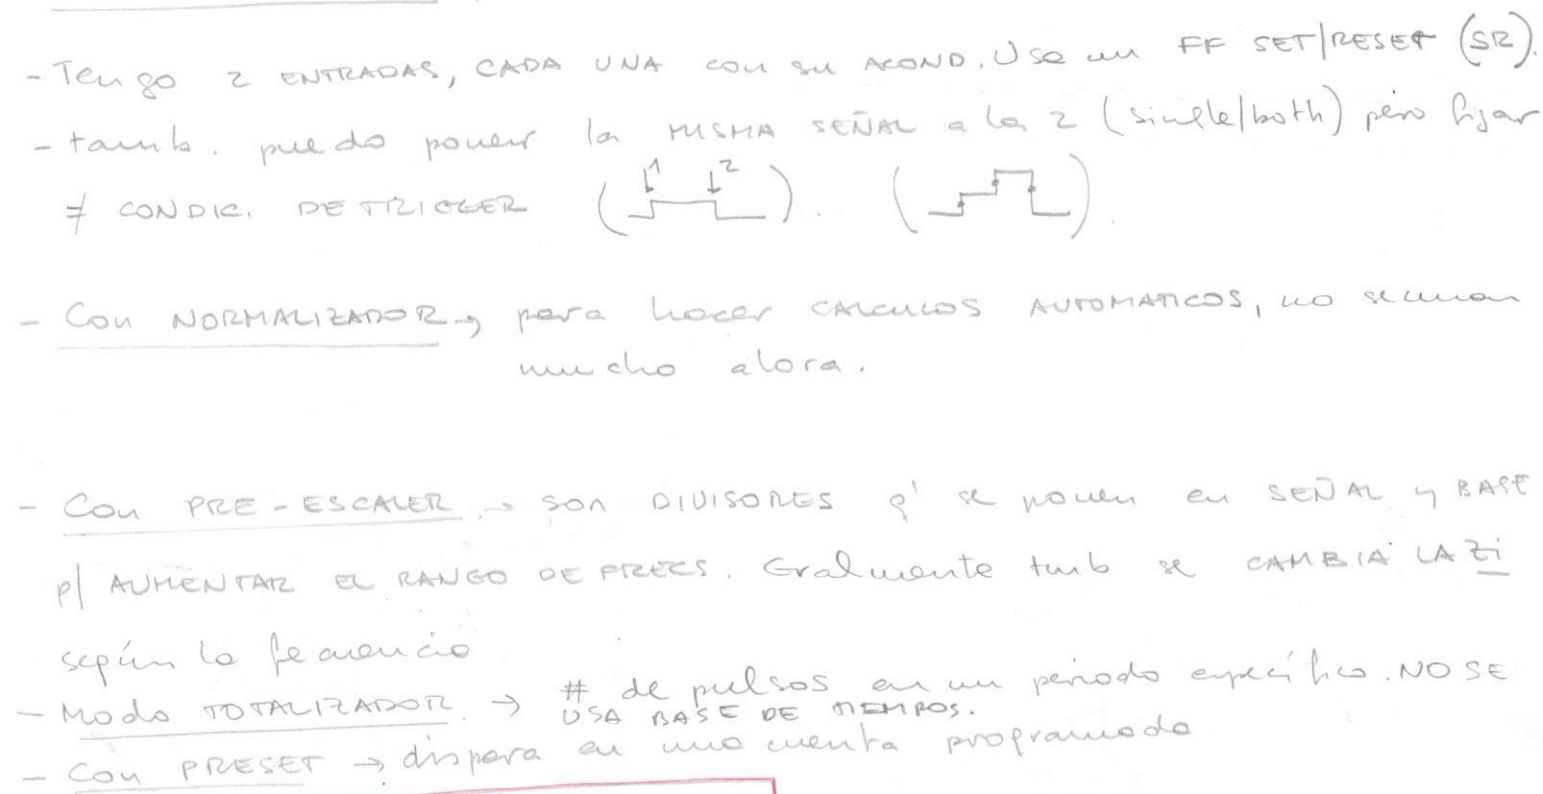 - Tengo 2 ENTRADAS, CADA UNA con su ACOND. Uso un FF SET/RESET (SR).
- tamb. puedo poner la MISMA SEÑAL a la 2 (single/both) pero fijar
≠ CONDIC. DE TRIGGER ( 1 2 ). ( ).
- Con NORMALIZADOR → para hacer CALCULOS AUTOMATICOS, no se usan
mucho ahora.
- Con PRE-ESCALER → son DIVISORES q' se ponen en SEÑAL y BASE
p/ AUMENTAR EL RANGO DE FRECS. Gralmente tmb se CAMBIA LA Zi
según la frecuencia
- Modo TOTALIZADOR → # de pulsos en un periodo específico. NO SE
USA BASE DE TIEMPOS.
- Con PRESET → dispara en una cuenta programada